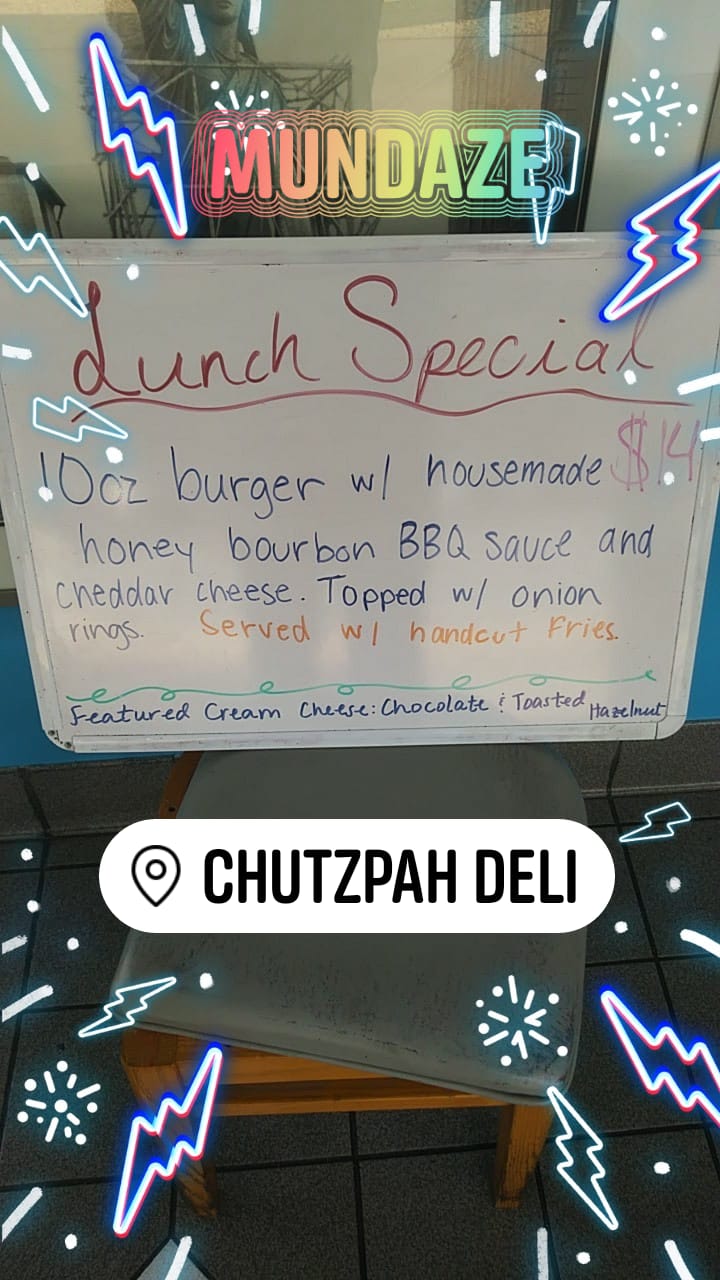 MUNDAZE
Lunch Special
10oz burger w/ housemade $14
honey bourbon BBQ sauce and
cheddar cheese. Topped w/ onion
rings. Served w/ handcut Fries.
Featured Cream Cheese: Chocolate & Toasted Hazelnut
CHUTZPAH DELI